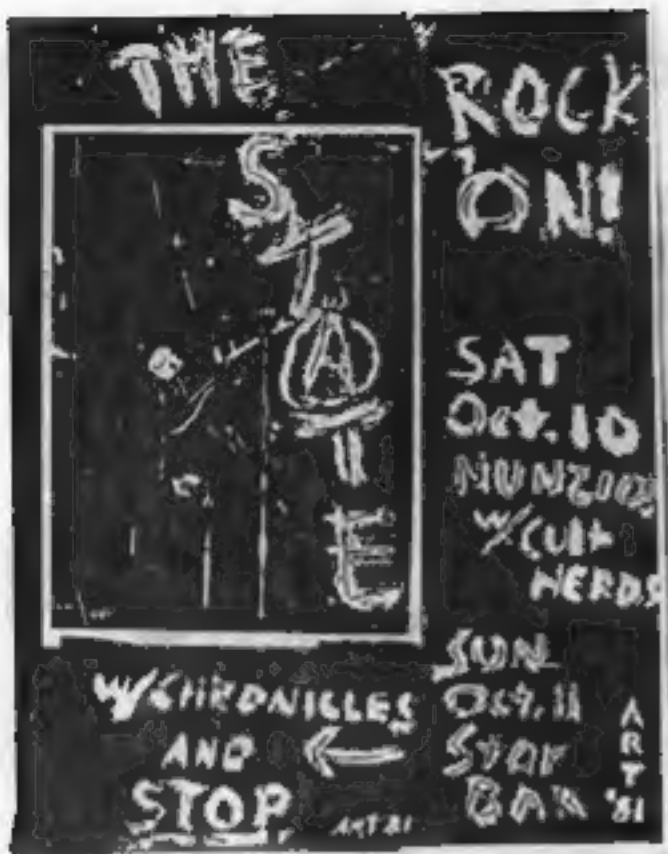 THE
STATE
ROCK
ON!
SAT
Oct. 10
NUNZIOS
W/CULT
NERDS
SUN
Oct. 11
STAR
BAR
W/CHRONICLES
AND
STOP
ART 81
ART '81